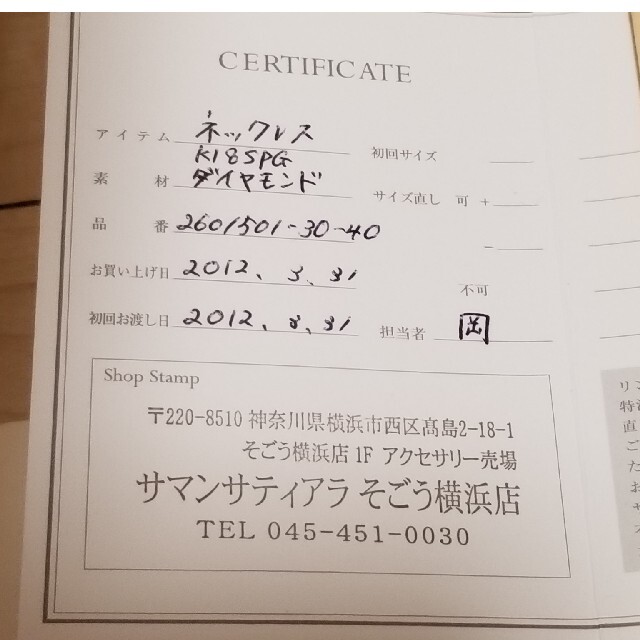 CERTIFICATE
アイテム ネックレス 初回サイズ
K18SPG
素材 ダイヤモンド サイズ直し 可 +
品番 2601501-30-40 -
お買い上げ日 2012. 3. 31 不可
初回お渡し日 2012. 3. 31 担当者 岡
Shop Stamp
〒220-8510 神奈川県横浜市西区髙島2-18-1
そごう横浜店 1F アクセサリー売場
サマンサティアラ そごう横浜店
TEL 045-451-0030